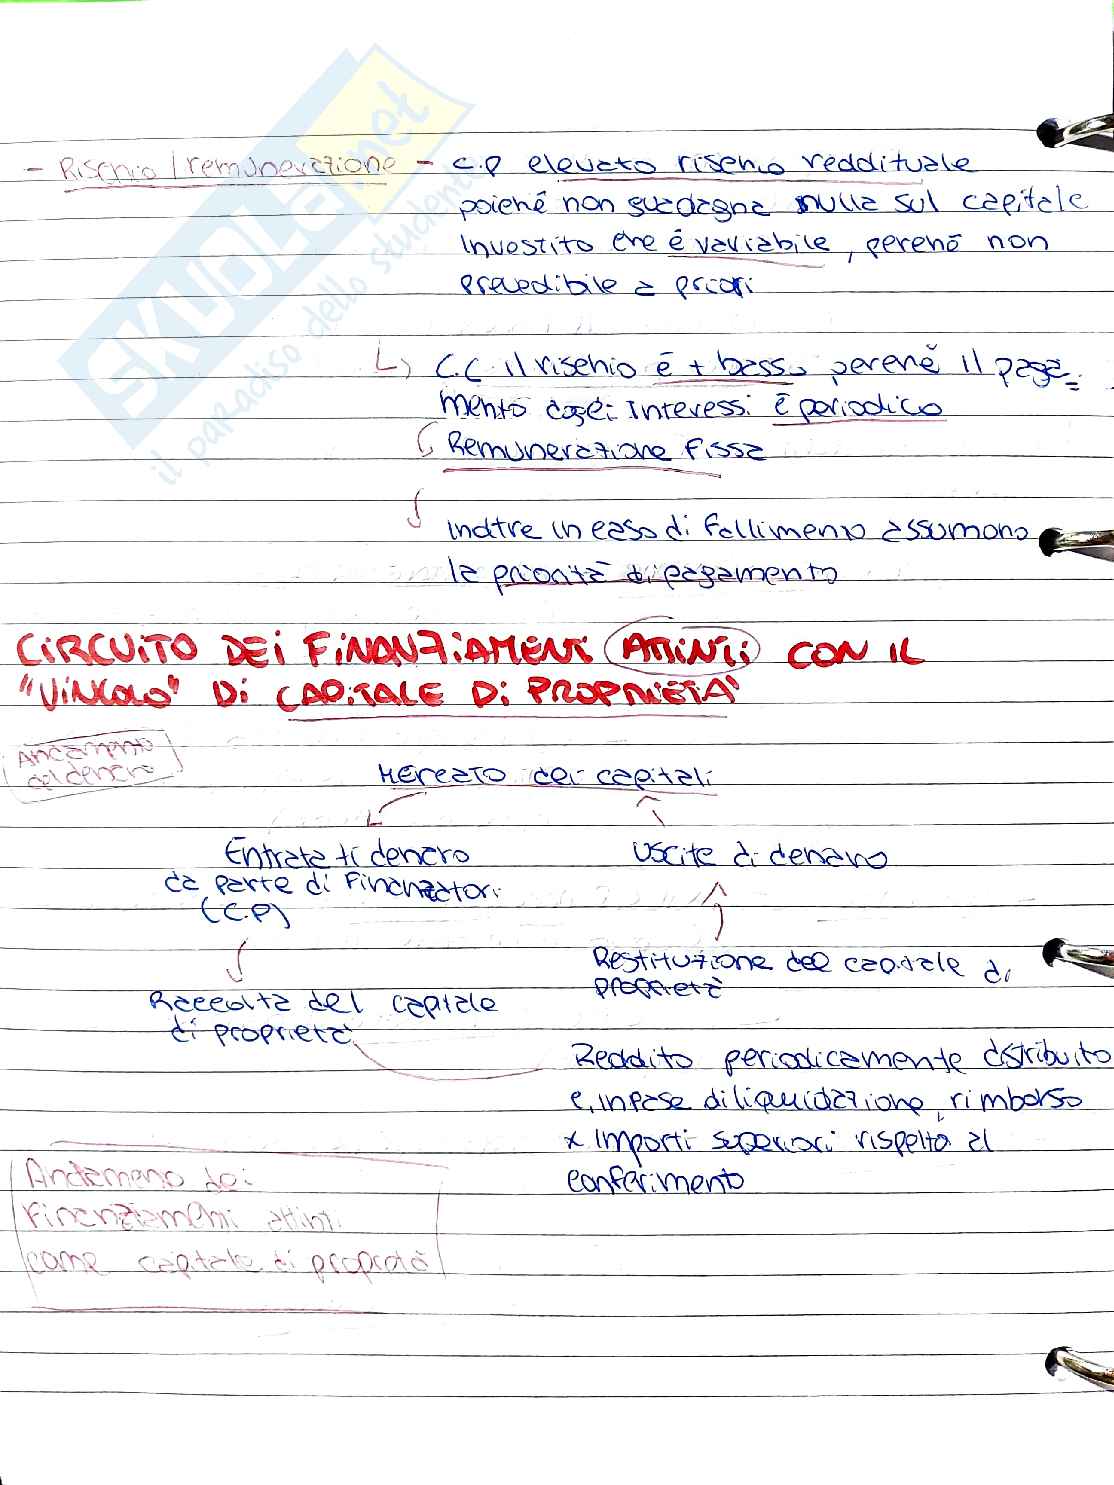 SKUOLA.net
il paradiso dello studente
- Rischio / remunerazione - C.P elevato rischio reddituale
poiché non guadagna nulla sul capitale
Investito che è variabile, perché non
prevedibile a priori
↳ C.C il rischio è + basso perché il paga=
mento degli Interessi è periodico
Remunerazione fissa
Inoltre in caso di fallimento assumono
la priorità di pagamento
CIRCUITO DEI FINANZIAMENTI ATTINTI CON IL
"VINCOLO" DI CAPITALE DI PROPRIETÀ
Andamento
del denaro
Mercato dei capitali
Entrata di denaro
da parte di Finanziatori
(C.P)
Uscite di denaro
Raccolta del capitale
di proprietà
Restituzione del capitale di
proprietà
Reddito periodicamente distribuito
e, in fase di liquidazione, rimborso
x Importi superiori rispetto al
conferimento
Andameno dei
Finanziamenti attinti
come capitale di proprietà